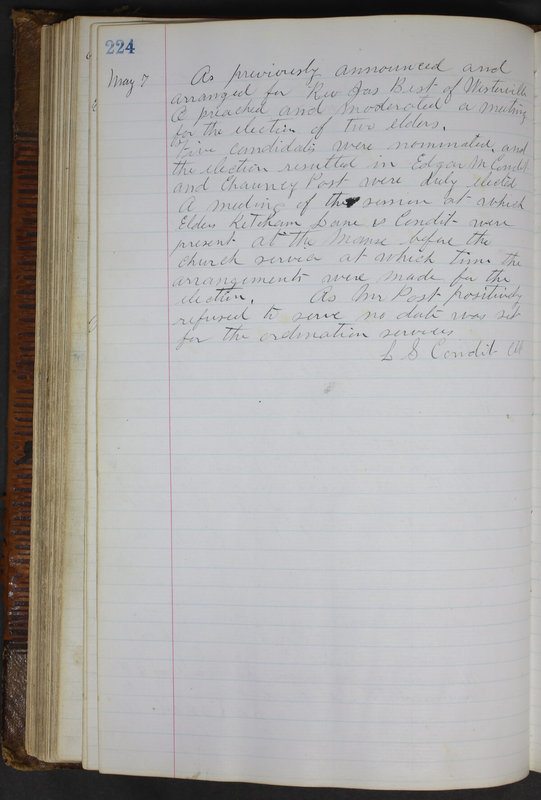 224
May 7 As previously announced and
arranged for Rev Jas Best of Westerville
O preached and moderated a meeting
for the election of two elders.
Five candidates were nominated and
the election resulted in Edgar M Condit
and Chauncy Post were duly elected
A meeting of the session at which
Elders Ketcham Lane & Condit were
present at the Manse before the
church service at which time the
arrangements were made for the
election. As Mr Post positively
refused to serve no date was set
for the ordination services
L S Condit Clk